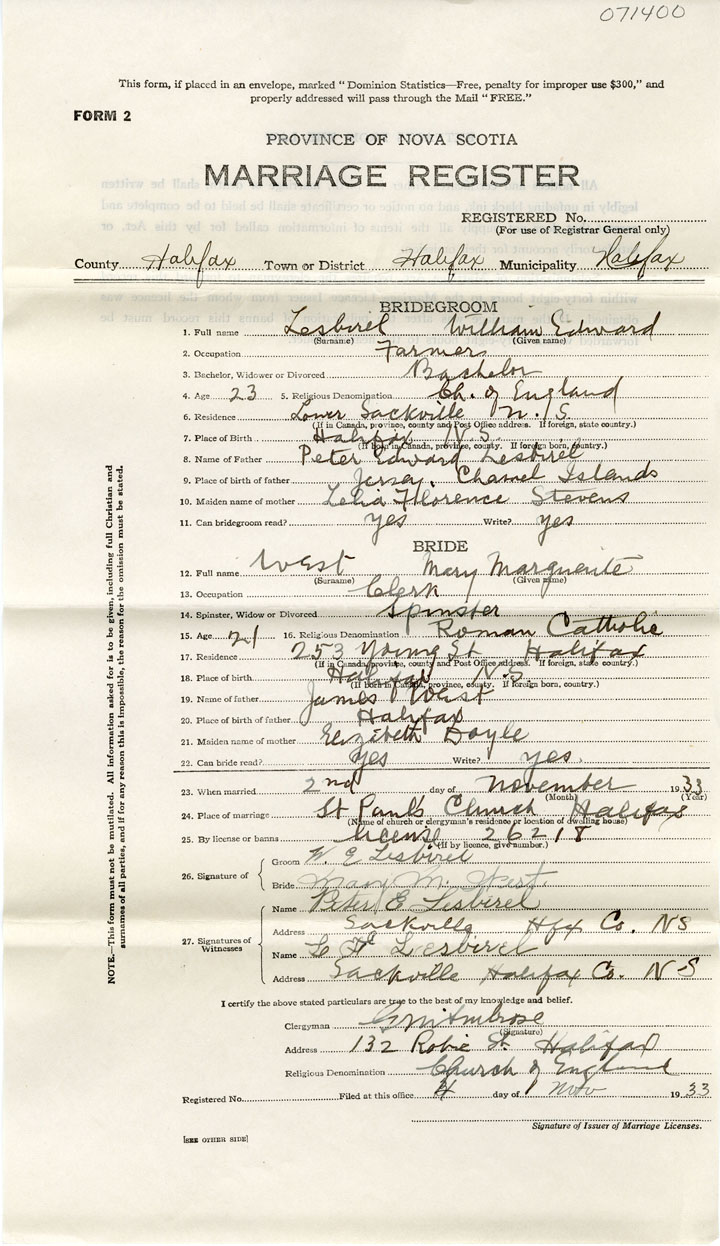 071400
This form, if placed in an envelope, marked "Dominion Statistics—Free, penalty for improper use $300," and
properly addressed will pass through the Mail "FREE."
FORM 2
PROVINCE OF NOVA SCOTIA
MARRIAGE REGISTER
REGISTERED No.
(For use of Registrar General only)
County Halifax Town or District Halifax Municipality Halifax
BRIDEGROOM
1. Full name Lesbirel William Edward
(Surname) (Given name)
2. Occupation Farmer
3. Bachelor, Widower or Divorced Bachelor
4. Age 23 5. Religious Denomination Ch. of England
6. Residence Lower Sackville N. S.
(If in Canada, province, county and Post Office address. If foreign, state country.)
7. Place of Birth Halifax N.S.
(If born in Canada, province, county. If foreign born, country.)
8. Name of Father Peter Edward Lesbirel
9. Place of birth of father Jersey. Channel Islands
10. Maiden name of mother Lelia Florence Stevens
11. Can bridegroom read? yes Write? yes
BRIDE
12. Full name West Mary Marguerite
(Surname) (Given name)
13. Occupation Clerk
14. Spinster, Widow or Divorced Spinster
15. Age 21 16. Religious Denomination Roman Catholic
17. Residence 253 Young St. Halifax
(If in Canada, province, county and Post Office address. If foreign, state country.)
18. Place of birth Halifax N.S.
(If born in Canada, province, county. If foreign born, country.)
19. Name of father James West
20. Place of birth of father Halifax
21. Maiden name of mother Elizabeth Doyle
22. Can bride read? yes Write? yes.
23. When married 2nd day of November 1933
(Month) (Year)
24. Place of marriage St Paul's Church Halifax
(Name of church or clergyman's residence or location of dwelling house)
25. By license or banns license 26218
(If by licence, give number.)
26. Signature of
Groom W. E Lesbirel
Bride Mary M. West
27. Signatures of Witnesses
Name Peter E Lesbirel
Address Sackville Hfx Co. NS
Name Lesbirel
Address Sackville Halifax Co. N-S
I certify the above stated particulars are true to the best of my knowledge and belief.
Clergyman Ambrose
(Signature)
Address 132 Robie St. Halifax
Religious Denomination Church of England
Registered No. Filed at this office 4 day of Nov 1933
Signature of Issuer of Marriage Licenses.
[SEE OTHER SIDE]
NOTE.—This form must not be mutilated. All information asked for is to be given, including full Christian and
surnames of all parties, and if for any reason this is impossible, the reason for the omission must be stated.